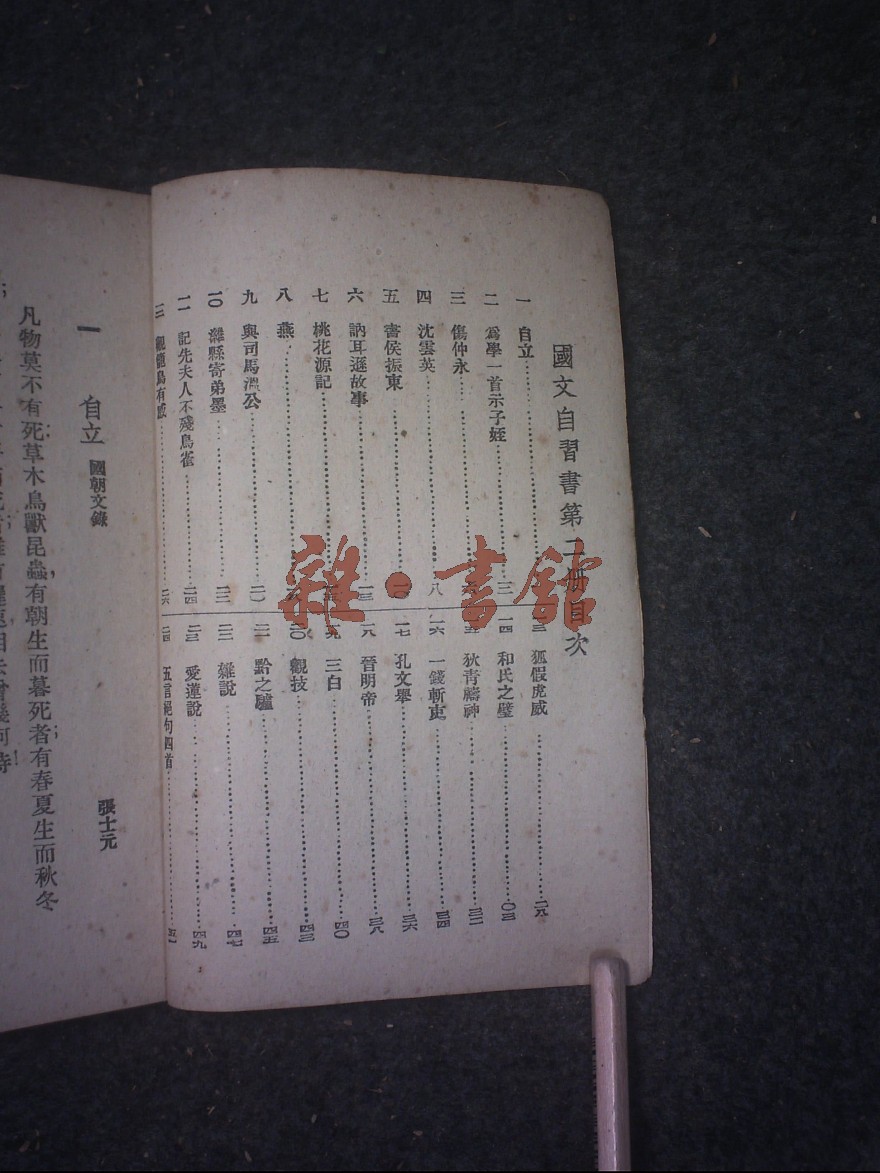 國文自習書第二冊目次
一 自立
二 爲學一首示子姪 三
三 傷仲永
四 沈雲英 八
五 書侯振東 一〇
六 訥耳遜故事 一三
七 桃花源記
八 燕
九 與司馬溫公 二〇
一〇 濰縣寄弟墨 二二
一一 記先夫人不殘鳥雀 二四
一二 觀龍鳥有感 二六
一三 狐假虎威 二八
一四 和氏之璧 三〇
一五 狄青禱神 三二
一六 一錢斬吏 三四
一七 孔文舉 三六
一八 晉明帝 三八
一九 三白 四〇
二〇 觀技 四三
二一 黔之驢 四五
二二 雜說 四七
二三 愛蓮說 四九
二四 五言絕句四首 五一
雜·書館
一 自立 國朝文錄 張士元
凡物莫不有死草木鳥獸昆蟲有朝生而暮死者有春夏生而秋冬